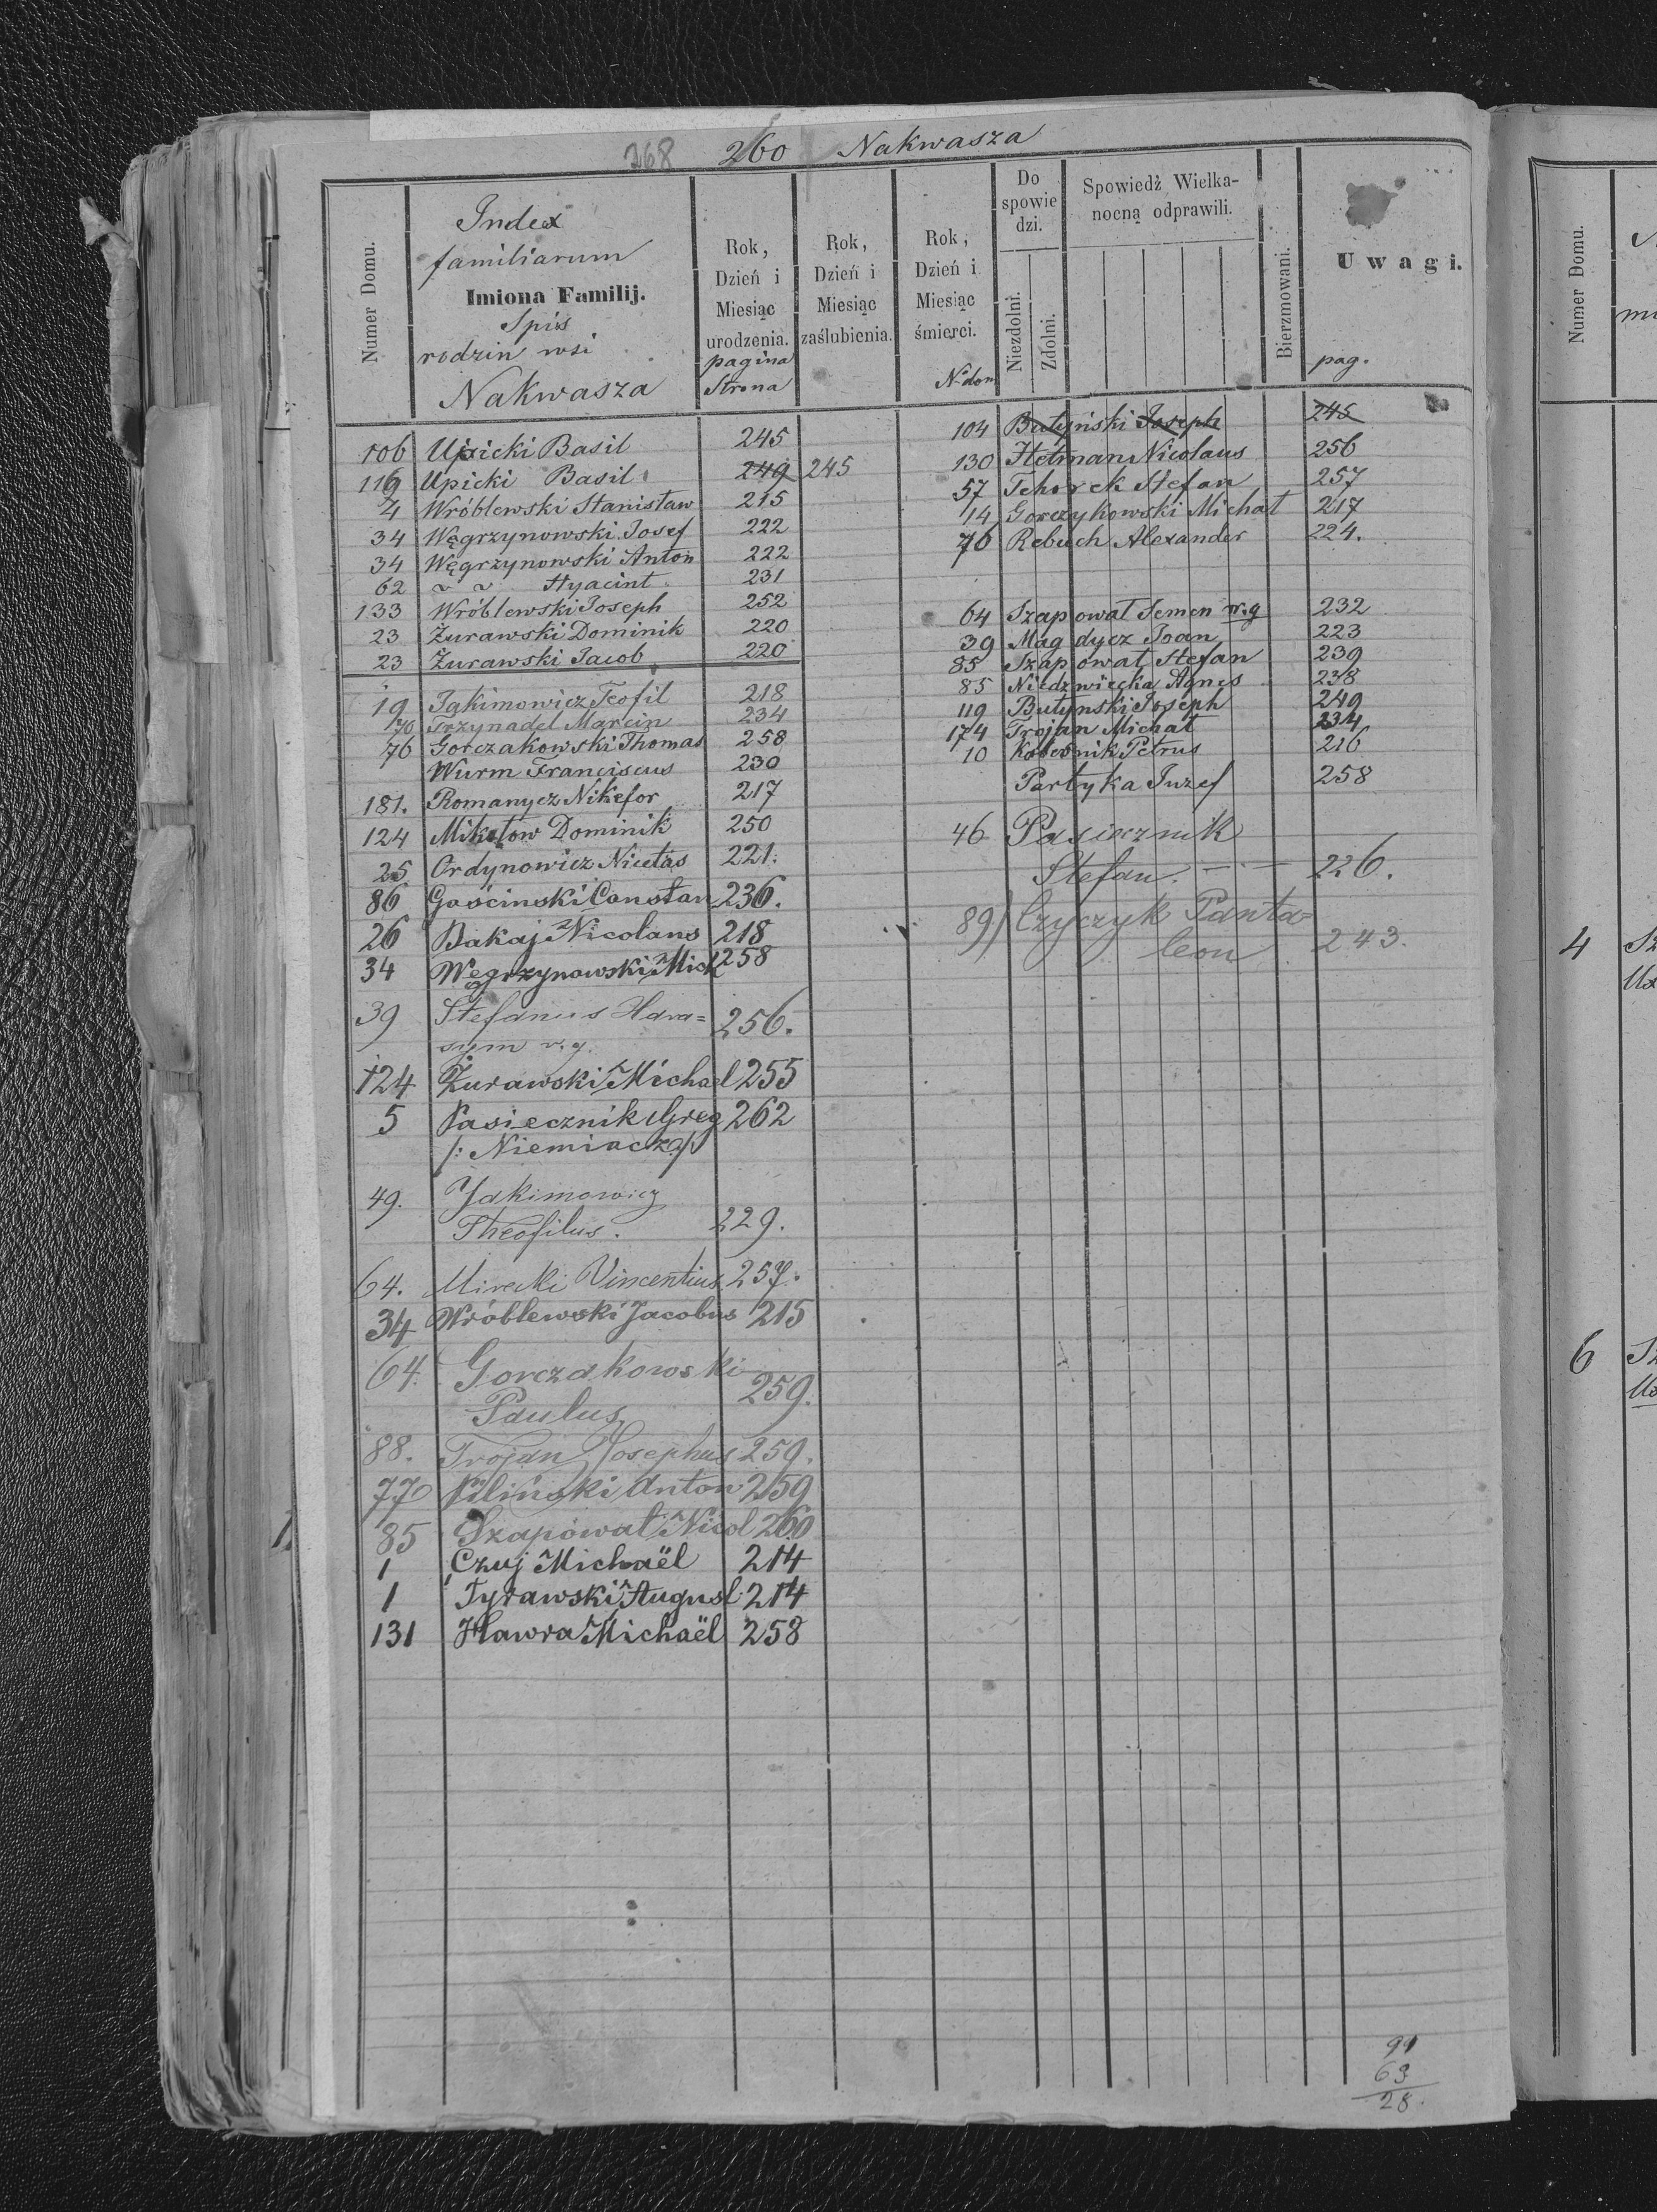 268 260 Nakwasza
Numer Domu.
Index
familiarum
Imiona Familij.
Spis
rodzin wsi
Nakwasza
Rok,
Dzień i
Miesiąc
urodzenia.
pagina
Strona
Rok,
Dzień i
Miesiąc
zaślubienia.
Rok,
Dzień i
Miesiąc
śmierci.
N dom
Do
spowie
dzi.
Niezdolni.
Zdolni.
Spowiedź Wielka-
nocną odprawili.
Bierzmowani.
Uwagi.
pag.
106 Upicki Basil 245
119 Upicki Basil 249 245
4 Wróblewski Stanisław 215
34 Węgrzynowski Josef 222
34 Węgrzynowski Anton 222
62 ~ ~ Hyacint 231
133 Wróblewski Joseph 252
23 Żurawski Dominik 220
23 Żurawski Jacob 220
19 Jakimowicz Teofil 218
70 Trzynadel Marcin 234
76 Gorczakowski Thomas 258
Wurm Franciscus 230
181. Romanycz Nikefor 217
124 Mikołow Dominik 250
25 Ordynowicz Nicetas 221.
86 Gościnski Constan 236.
26 Bakaj Nicolaus 218
34 Węgrzynowski Mich 258
39 Stefanus Hara=
sym r. g. 256.
124 Żurawski Michael 255
5 Pasiecznik Greg 262
/: Niemiacz :/
49. Jakimowicz
Theofilus. 229.
64. Mirecki Vincentius 257.
34 Wróblewski Jacobus 215
64. Gorczakowski
Paulus 259.
88. Trojan Josephus 259.
77 Piliński Anton 259
85 Szapował Nicol 260
1 Czuj Michaël 214
1 Tyrawski August 214
131 Hawra Michaël 258
104 Butyński Joseph 245
130 Hetman Nicolaus 256
57 Tchorek Stefan 257
14 Gorczykowski Michał 217
76 Rebuch Alexander 224.
64 Szapował Semen r.g 232
39 Magdycz Joan 223
85 Szapował Stefan 239
85 Niedzwiecka Agnes 238
119 Butynski Joseph 249
174 Trojan Michał 234
10 Kolesnik Petrus 216
Partyka Juzef 258
46 Pasiecznik
Stefan. 226.
89/ Czyczyk Panta=
leon 243.
91
63
28.
Numer Domu.
4
6